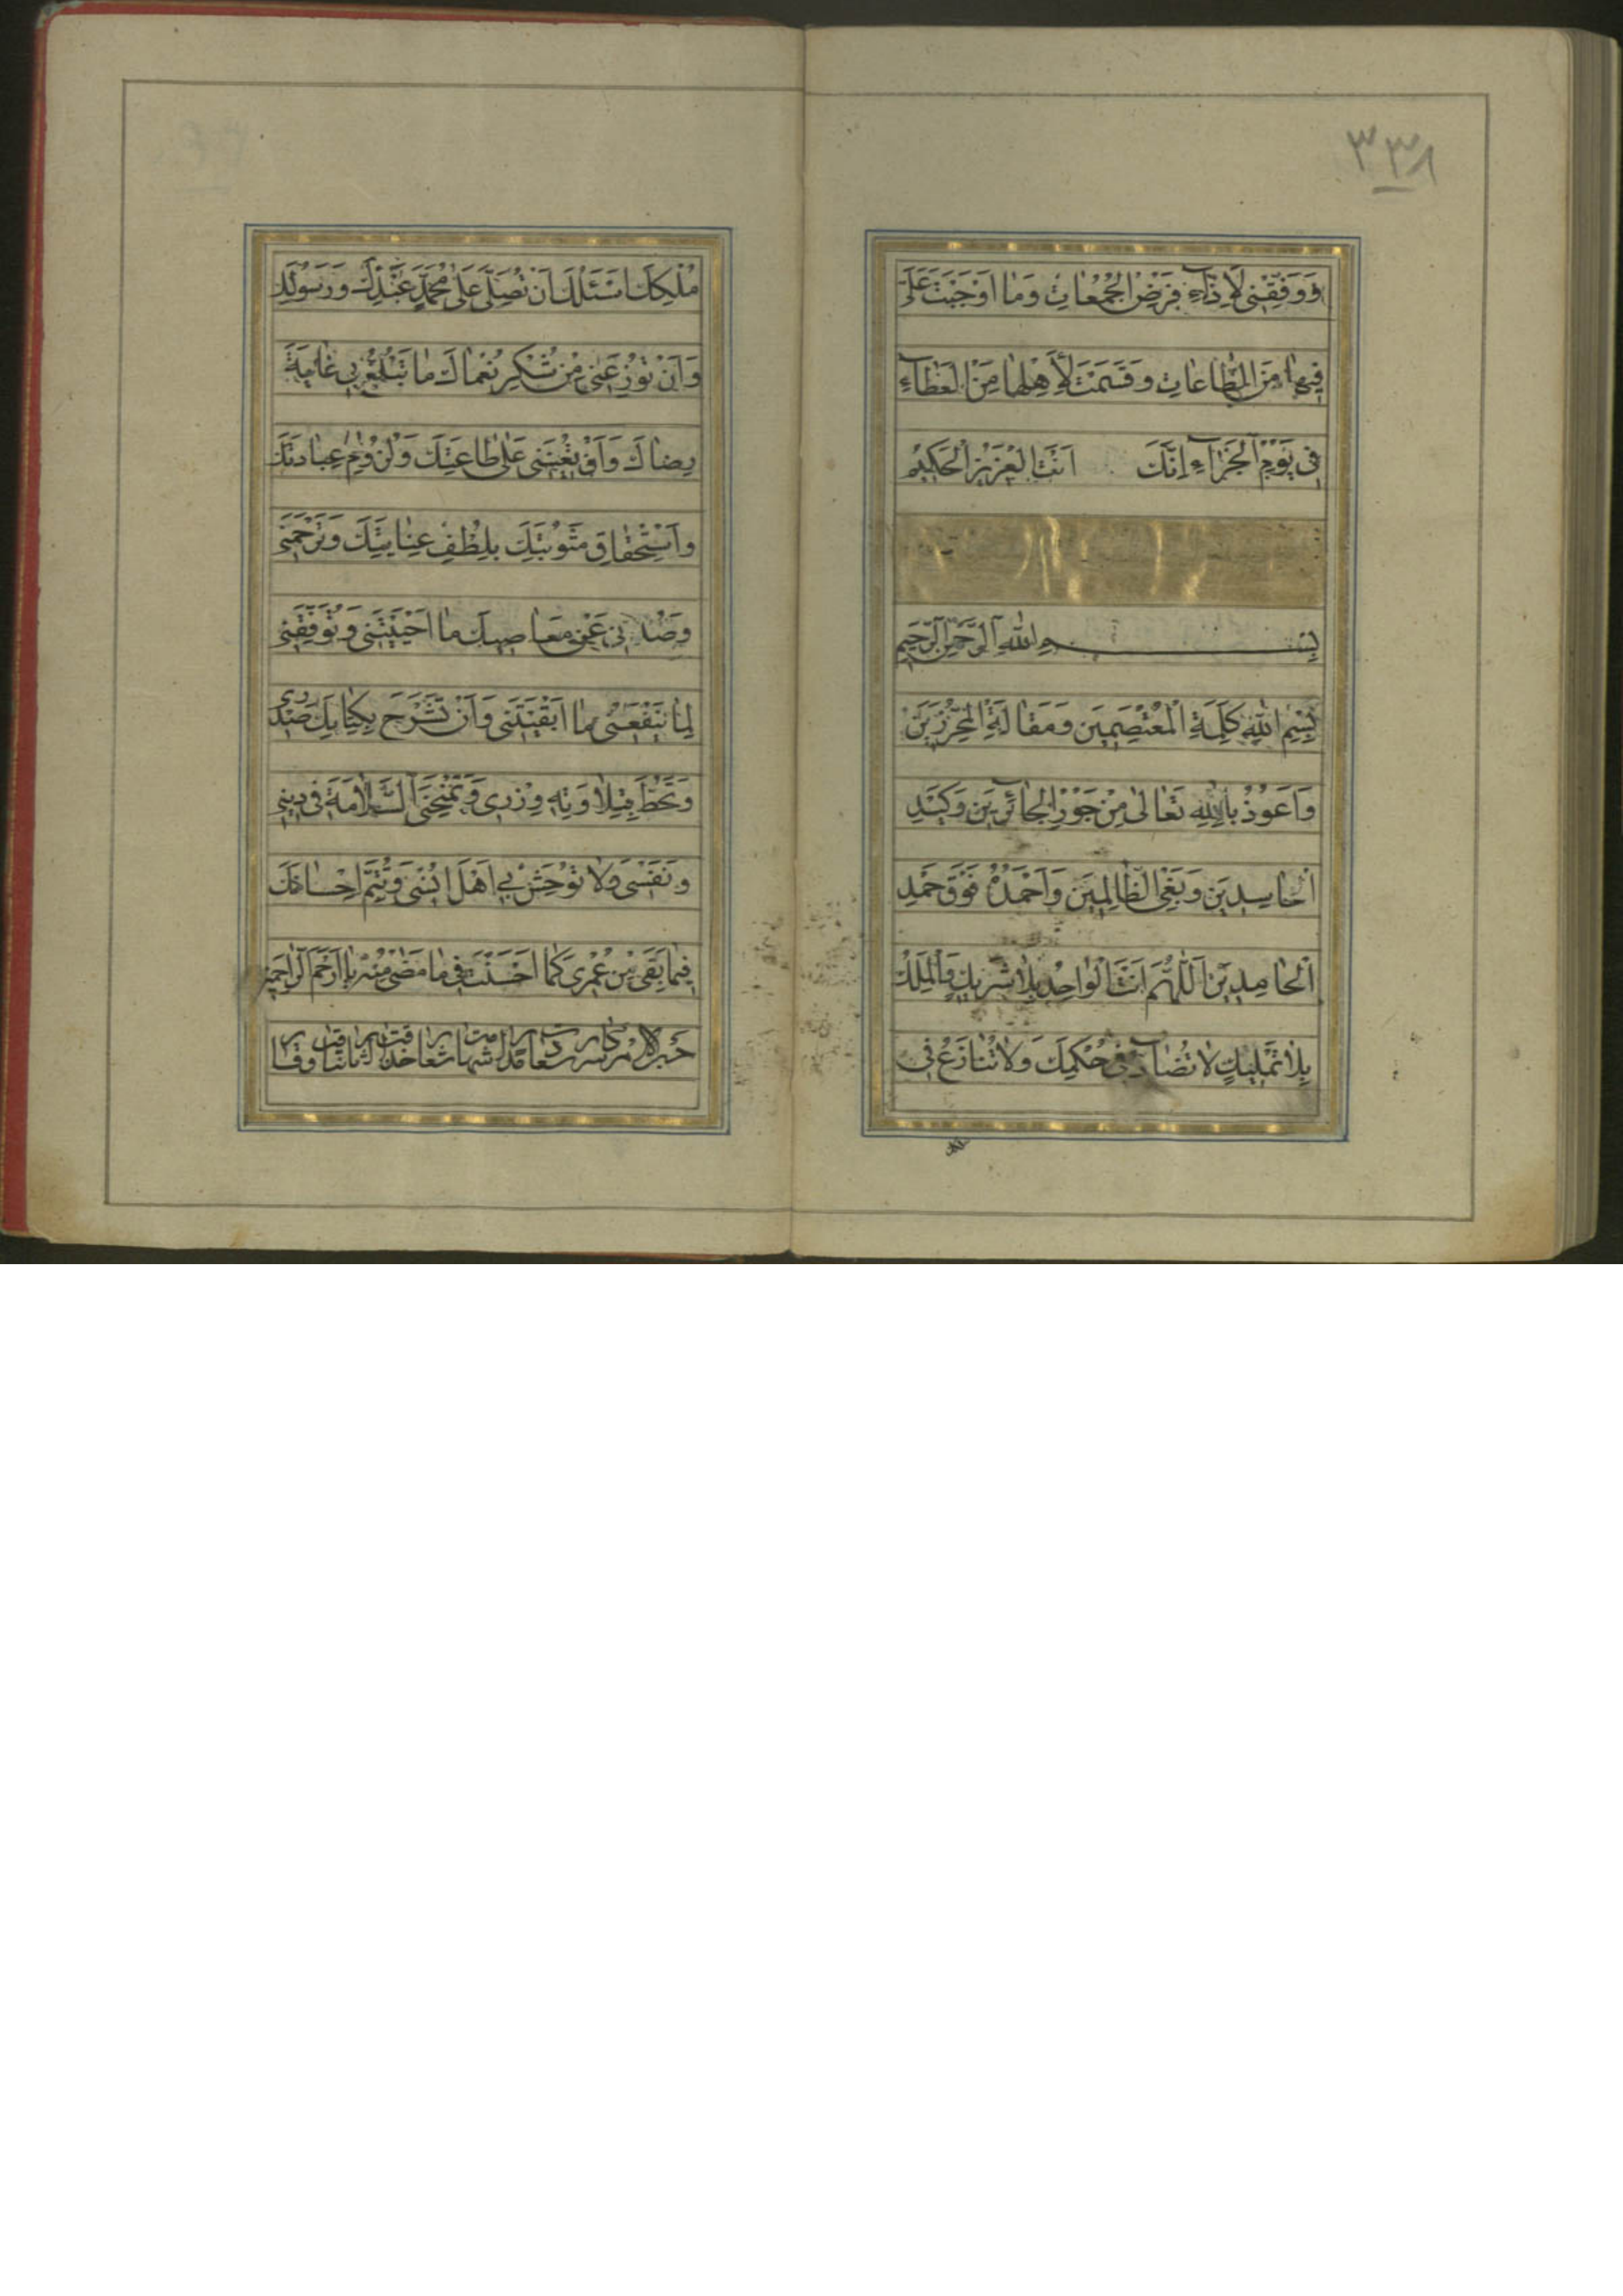 ٣٣٨
وَوَفِّقْنِي لِأَدَاءِ فَرْضِ الْجُمُعَاتِ وَمَا أَوْجَبْتَ عَلَيَّ
فِيهَا مِنَ الطَّاعَاتِ وَقَسَمْتَ لِأَهْلِهَا مِنَ الْعَطَاءِ
فِي يَوْمِ الْجَزَاءِ إِنَّكَ أَنْتَ الْعَزِيزُ الْحَكِيمُ
بِسْمِ اللهِ الرَّحْمٰنِ الرَّحِيمِ
بِسْمِ اللهِ كَلِمَةِ الْمُعْتَصِمِينَ وَمَقَالَةِ الْمُحَرِّزِينَ
وَأَعُوذُ بِاللهِ تَعَالَىٰ مِنْ جَوْرِ الْجَائِرِينَ وَكَيْدِ
الْحَاسِدِينَ وَبَغْيِ الظَّالِمِينَ وَأَحْمَدُهُ فَوْقَ حَمْدِ
الْحَامِدِينَ اَللّٰهُمَّ أَنْتَ الْوَاحِدُ بِلَا شَرِيكٍ وَالْمَلِكُ
بِلَا تَمْلِيكٍ لَا تُضَادُّ فِي حُكْمِكَ وَلَا تُنَازَعُ فِي
مُلْكِكَ اَسْئَلُكَ اَنْ تُصَلِّيَ عَلَىٰ مُحَمَّدٍ عَبْدِكَ وَرَسُولِكَ
وَاَنْ تُوزِعَنِي مِنْ شُكْرِ نُعْمَاكَ مَا تَبْلُغُ بِي غَايَةَ
رِضَاكَ وَاَنْ تُعِينَنِي عَلَىٰ طَاعَتِكَ وَلُزُومِ عِبَادَتِكَ
وَاسْتِحْقَاقِ مَثُوبَتِكَ بِلُطْفِ عِنَايَتِكَ وَتَرْحَمَنِي
وَصُدَّنِي عَنْ مَعَاصِيكَ مَا اَحْيَيْتَنِي وَتُوَفِّقَنِي
لِمَا يَنْفَعُنِي مَا اَبْقَيْتَنِي وَاَنْ تَشْرَحَ بِكِتَابِكَ صَدْرِي
وَتَحُطَّ بِتِلَاوَتِهِ وِزْرِي وَتَمْنَحَنِي السَّلَامَةَ فِي دِينِي
وَنَفْسِي وَلَا تُوحِشْ بِي اَهْلَ اُنْسِي وَتُتِمَّ اِحْسَانَكَ
فِيمَا بَقِيَ مِنْ عُمْرِي كَمَا اَحْسَنْتَ فِي مَا مَضَىٰ مِنْهُ يَا اَرْحَمَ الرَّاحِمِينَ